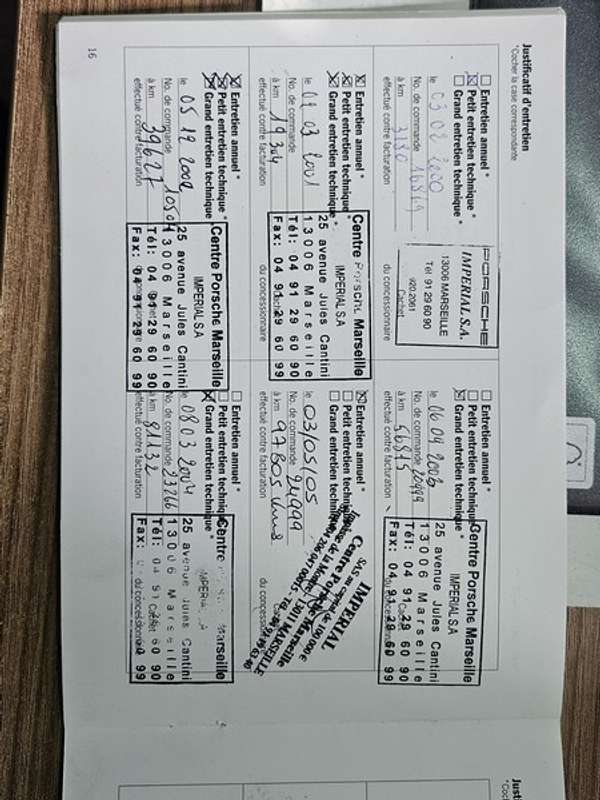 Justificatif d'entretien
*Cocher la case correspondante
Entretien annuel *
Petit entretien technique *
Grand entretien technique *
le 03 02 2000
No. de commande 16819
à km 3130
effectué contre facturation
PORSCHE
IMPERIAL S.A.
13006 MARSEILLE
Tél 91 29 60 90
920.2061
Cachet
du concessionnaire
Entretien annuel *
Petit entretien technique *
Grand entretien technique *
le 01 03 2001
No. de commande
à km 19304
effectué contre facturation
Centre Porsche Marseille
IMPERIAL S.A
25 avenue Jules Cantini
13006 Marseille
Tél: 04 91 29 60 90
Fax: 04 91 29 60 99
Cachet
du concessionnaire
Entretien annuel *
Petit entretien technique *
Grand entretien technique *
le 05 12 2002
No. de commande
à km 39627
effectué contre facturation
Centre Porsche Marseille
IMPERIAL S.A
25 avenue Jules Cantini
13006 Marseille
Tél: 04 91 29 60 90
Fax: 04 91 29 60 99
Cachet
du concessionnaire
Entretien annuel *
Petit entretien technique *
Grand entretien technique *
le 04 2003
No. de commande 20999
à km 56875
effectué contre facturation
Centre Porsche Marseille
IMPERIAL S.A
25 avenue Jules Cantini
13006 Marseille
Tél: 04 91 29 60 90
Fax: 04 91 29 60 99
Cachet
du concessionnaire
Entretien annuel *
Petit entretien technique
Grand entretien technique
le 03/05/05
No. de commande 24999
à km 97805 kms
effectué contre facturation
IMPERIAL
Centre Porsche Marseille
13011 MARSEILLE
du concessionnaire
Entretien annuel *
Petit entretien technique
Grand entretien technique *
le 08 03 2004
No. de commande 23266
à km 81132
effectué contre facturation
Centre Marseille
IMPERIAL S.A
25 avenue Jules Cantini
13006 Marseille
Tél: 04 91 29 60 90
Fax: 60 99
Cachet
du concessionnaire
16
Just
*Coc